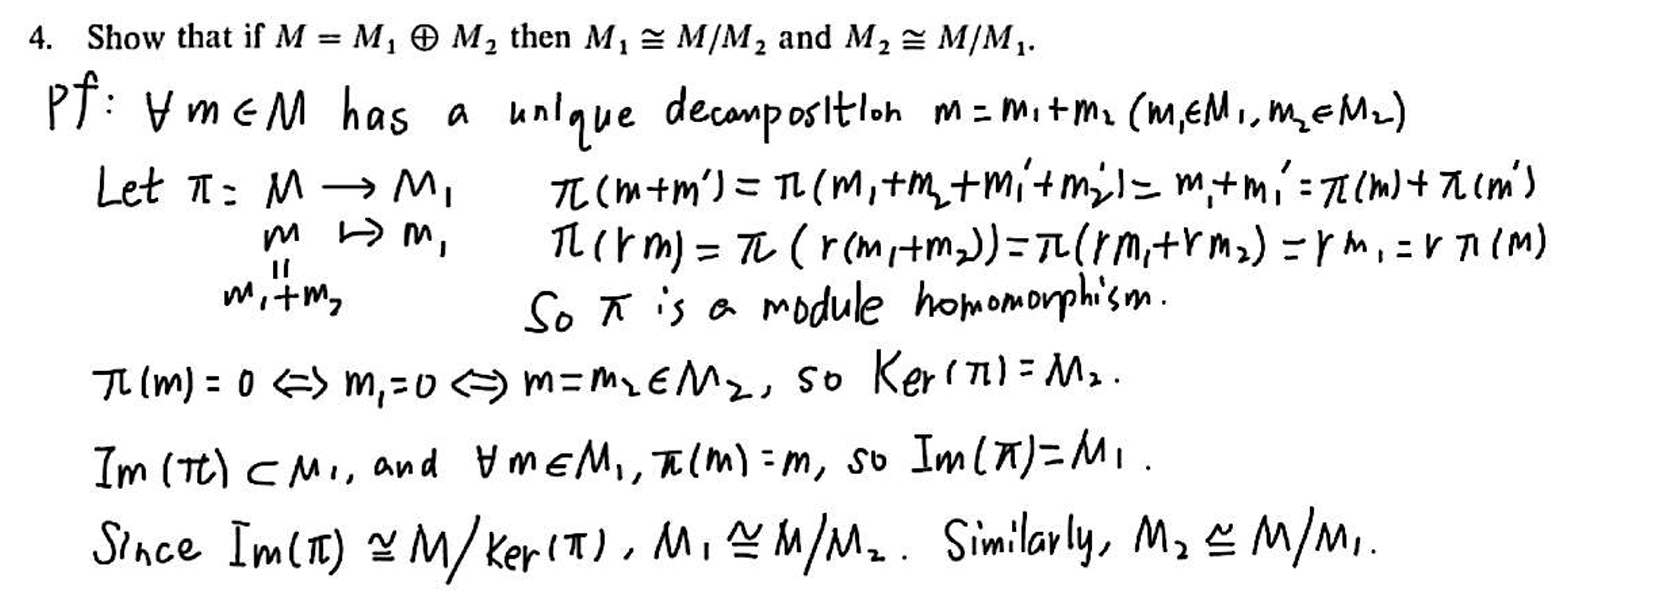 4. Show that if M = M₁ ⊕ M₂ then M₁ ≅ M/M₂ and M₂ ≅ M/M₁.
Pf: ∀ m ∈ M has a unique decomposition m = m₁ + m₂ (m₁∈M₁, m₂∈M₂)
Let π: M → M₁ π(m+m') = π(m₁+m₂+m₁'+m₂') = m₁+m₁' = π(m) + π(m')
m ↦ m₁ π(rm) = π(r(m₁+m₂)) = π(rm₁+rm₂) = rm₁ = rπ(m)
||
m₁+m₂ So π is a module homomorphism.
π(m) = 0 ⇔ m₁=0 ⇔ m=m₂∈M₂, so Ker(π) = M₂.
Im(π) ⊂ M₁, and ∀ m∈M₁, π(m) = m, so Im(π) = M₁.
Since Im(π) ≅ M/Ker(π), M₁ ≅ M/M₂. Similarly, M₂ ≅ M/M₁.